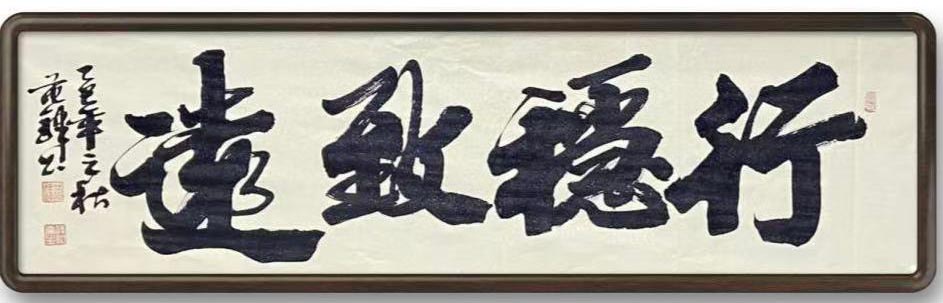 行穩致遠
乙巳年之秋
范鐸書